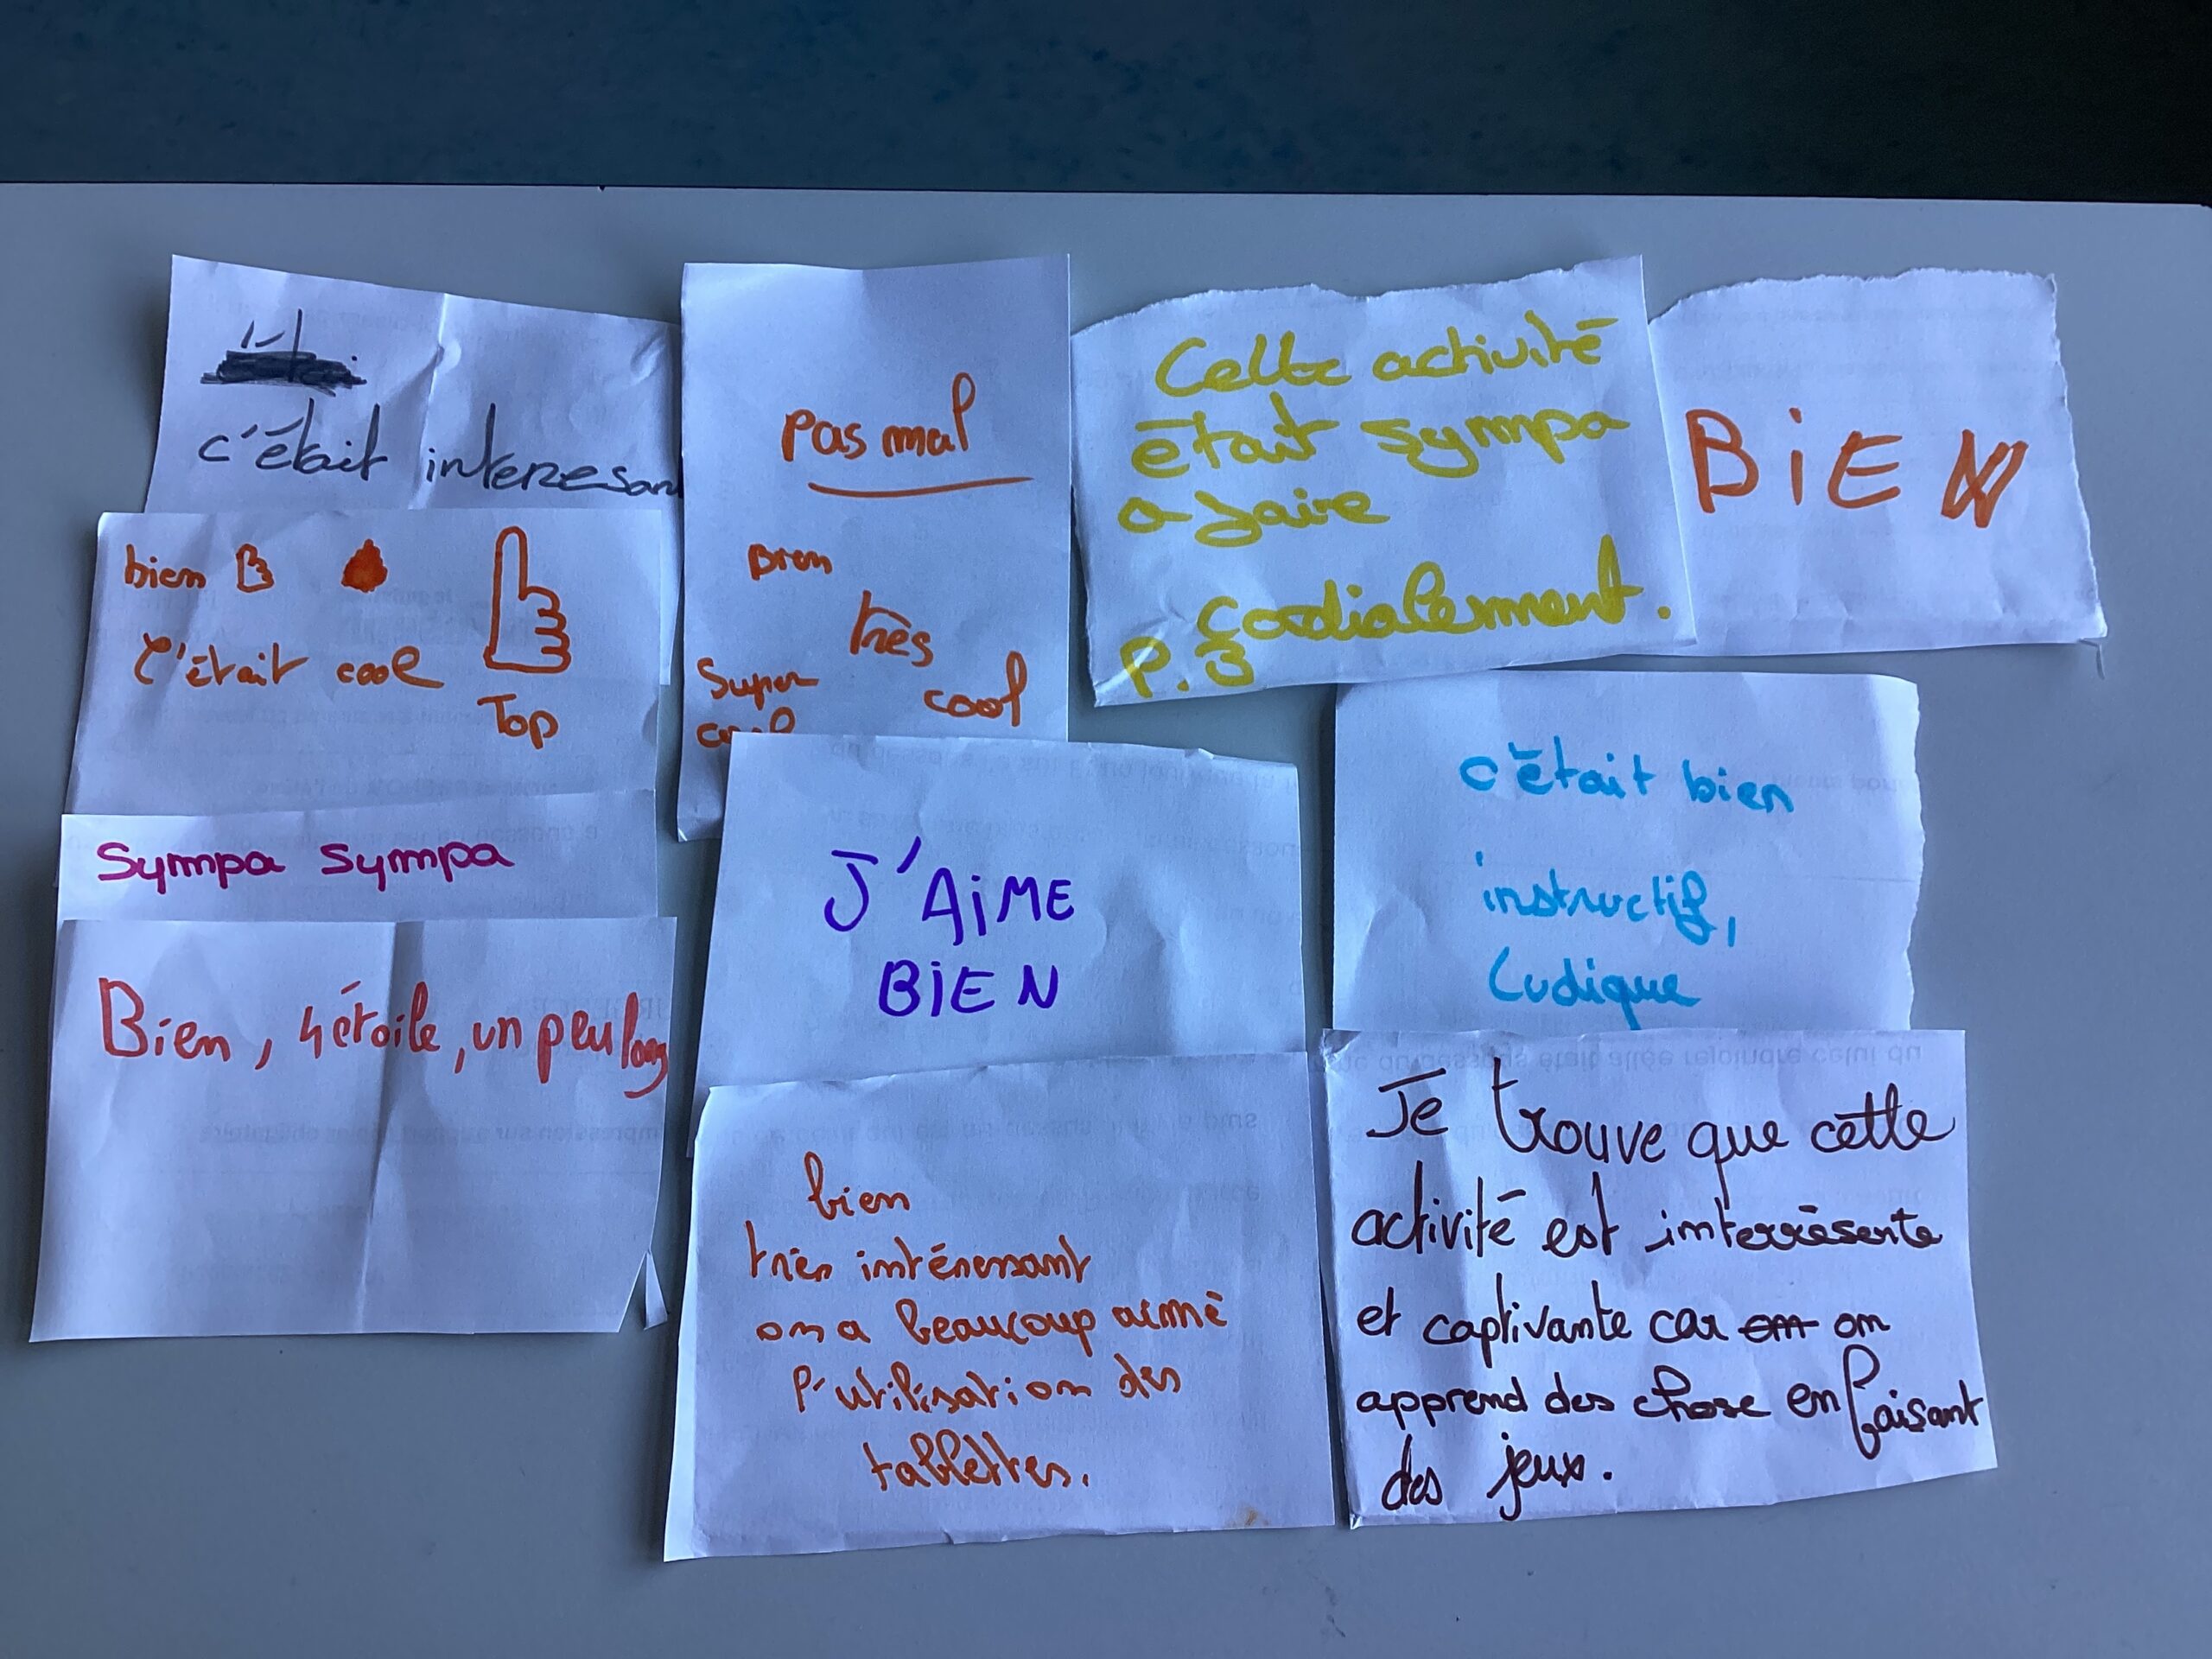 c'était interesan
pas mal
bien
très
cool
Super
cool
Cette activité
était sympa
a faire
Cordialement.
P. 3
BiEN
bien
C'était cool
Top
Sympa Sympa
Bien, 4 étoile, un peu long
J'AiME
BiEN
c'était bien
instructif,
Ludique
bien
très intéressant
on a beaucoup aimé
l'utilisation des
tablettes.
Je trouve que cette
activité est interrèsente
et captivante car on on
apprend des chose en faisant
des jeux.